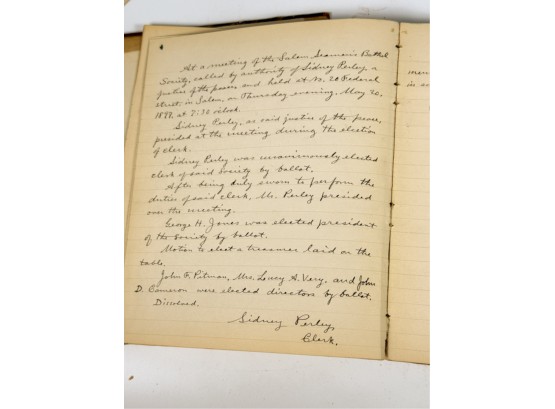 At a meeting of the Salem Seamen's Bethel
Society, called by authority of Sidney Perley, a
justice of the peace, and held at No. 20 Federal
street, in Salem, on Thursday evening, May 20,
1897, at 7:30 o'clock.
Sidney Perley, as said justice of the peace,
presided at the meeting during the election
of clerk.
Sidney Perley was unanimously elected
clerk of said Society by ballot.
After being duly sworn to perform the
duties of said clerk, Mr. Perley presided
over the meeting.
George H. Jones was elected president
of the Society by ballot.
Motion to elect a treasurer laid on the
table.
John F. Pitman, Mrs. A. Very, and John
D. Cameron were elected directors by ballot.
Dissolved.
Sidney Perley,
Clerk.